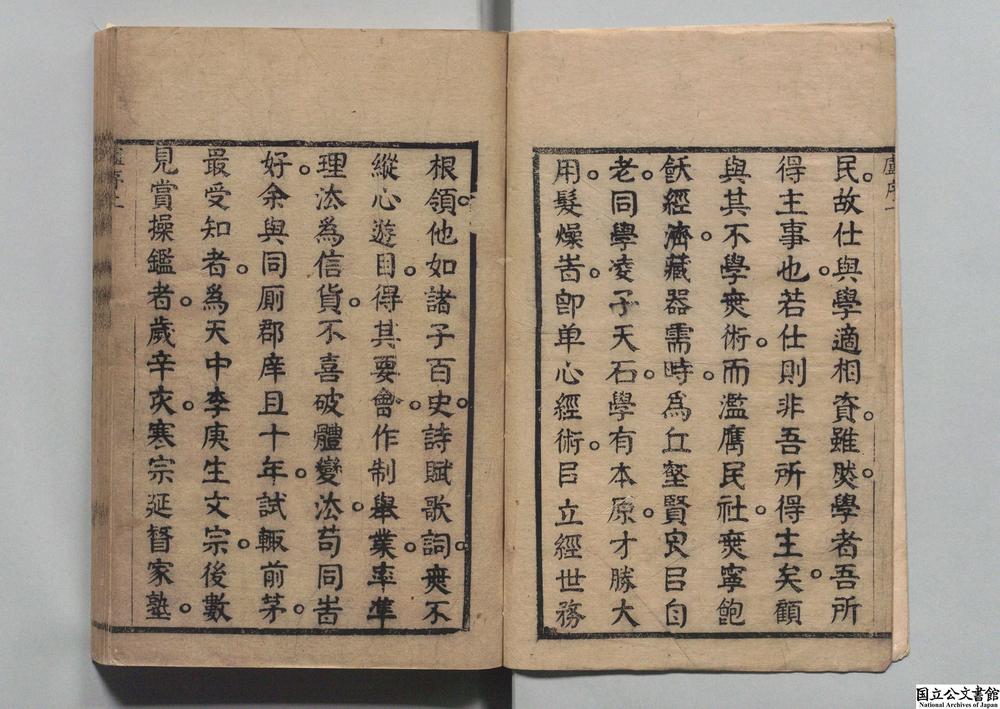 民故仕與學適相資雖然學者吾所
得主事也若仕則非吾所得主矣顧
與其不學無術而濫膺民社無寧飽
飫經濟藏器需時為丘壑賢良㠯自
老同學凌子天石學有本原才勝大
用髮燥旹卽单心經術㠯立經世務
根領他如諸子百史詩賦歌詞無不
縱心遊目得其要會作制舉業率準
理法為信貨不喜破體變法苟同旹
好余與同廁郡庠且十年試輒前茅
最受知者為天中李庚生文宗後數
見賞操鑑者歲辛亥寒宗延督家塾
国立公文書館
National Archives of Japan